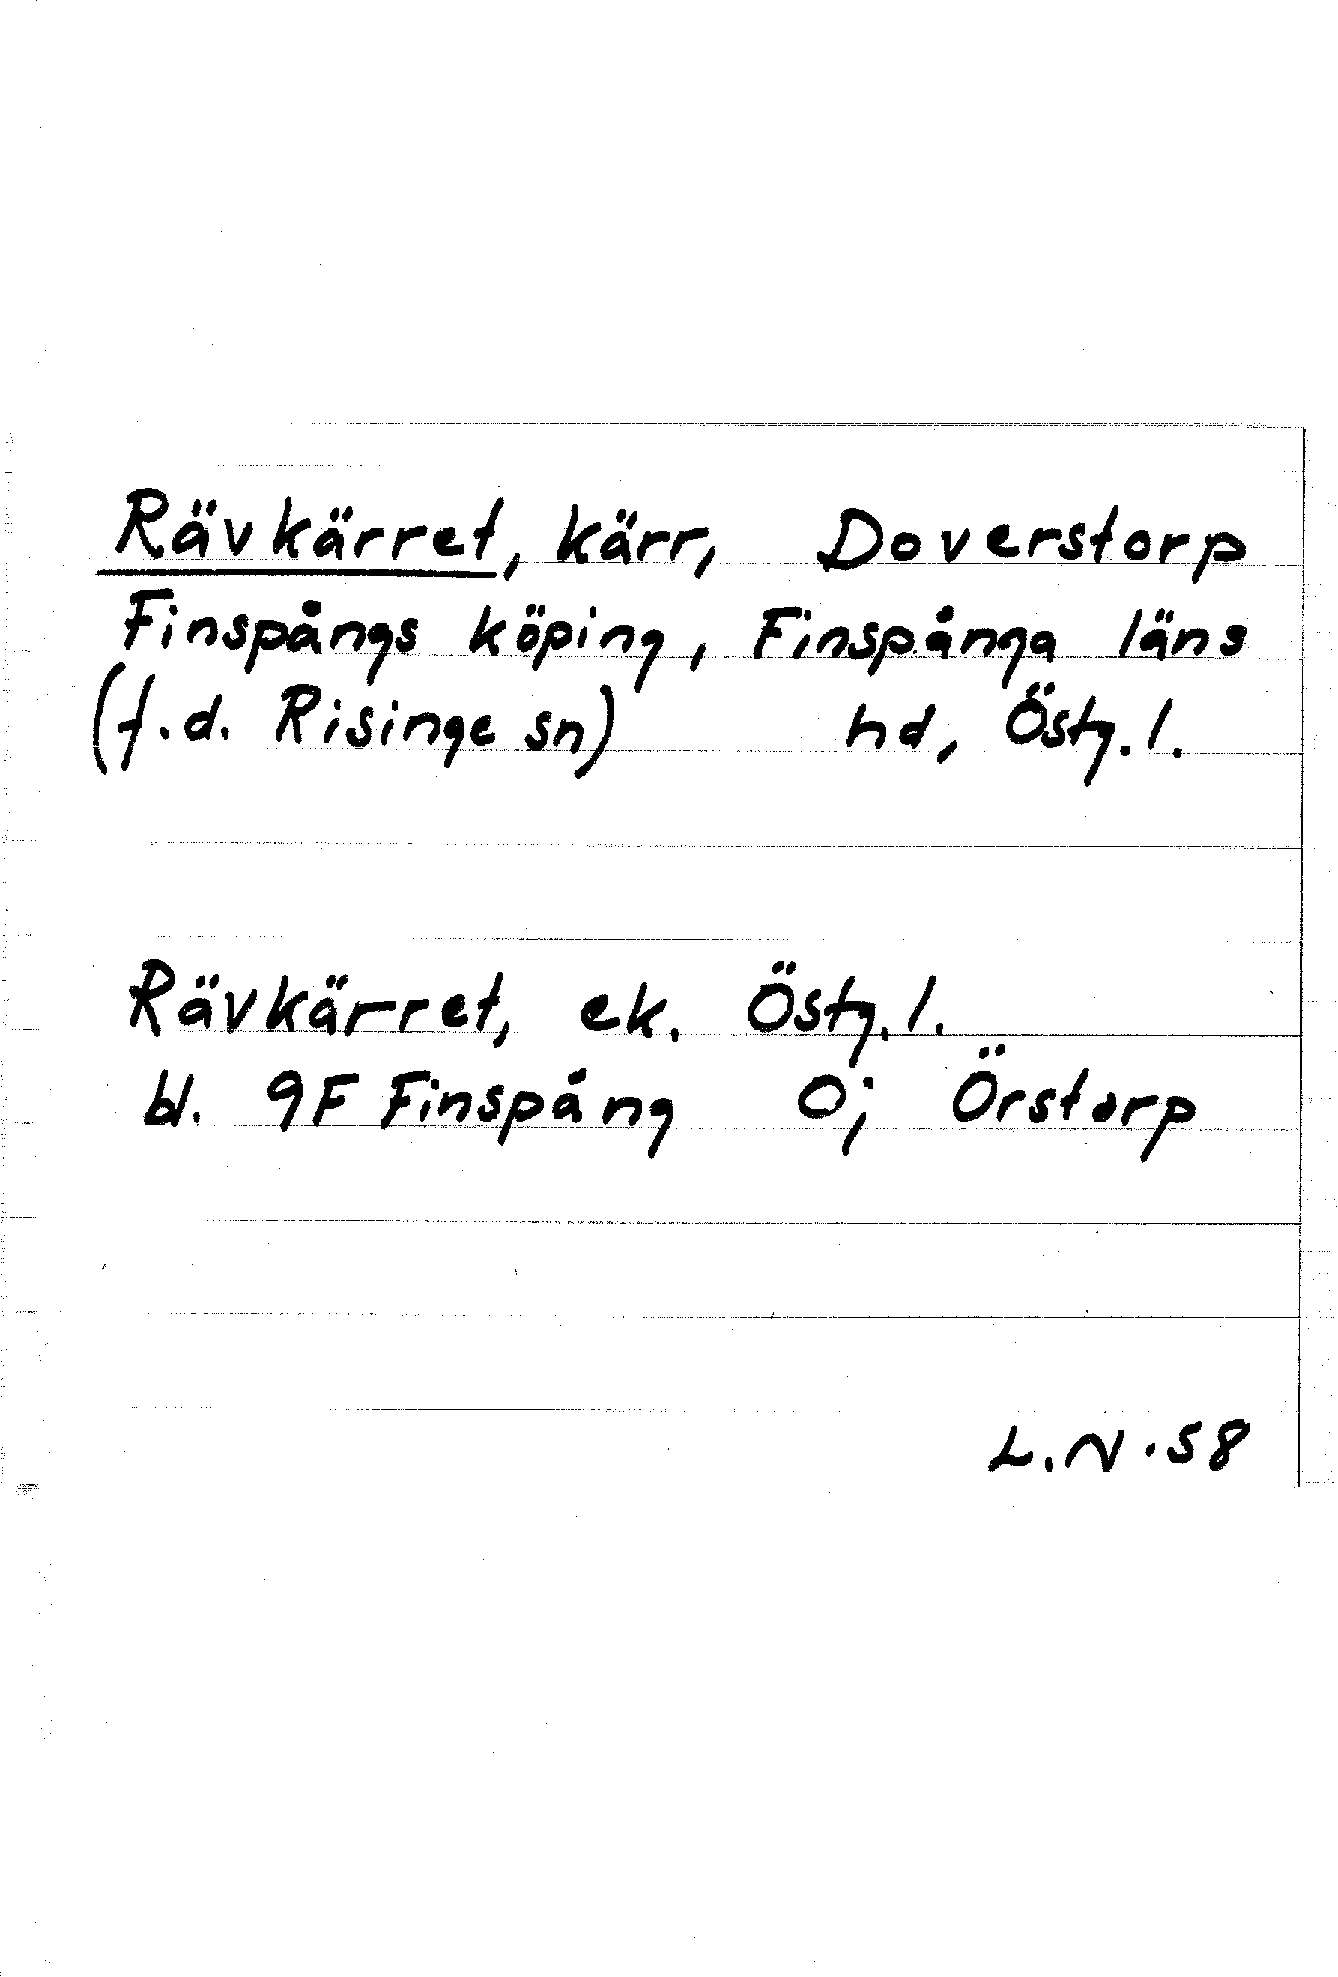 Rävkärret, kärr, Doverstorp
Finspångs köping, Finspånga läns
(f.d. Risinge sn) hd, Östg.l.
Rävkärret, ek. Östg.l.
bl. 9F Finspång 0j Örstorp
L.N.58